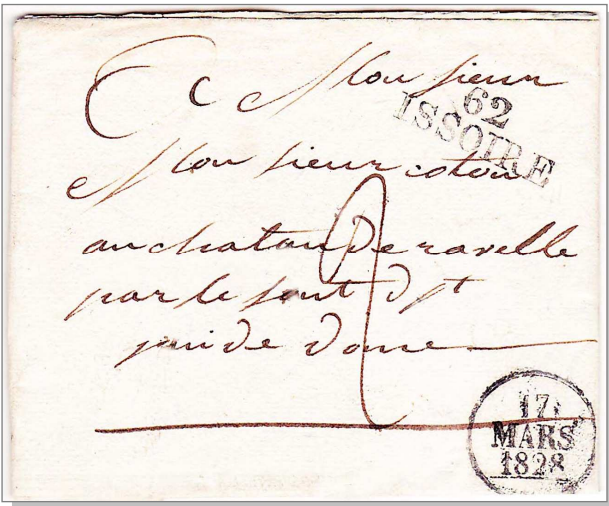 Monsieur
62
ISSOIRE
Monsieur coton
au chatau de ravelle
par le pont d pt
pui de dome
2
17
MARS
1828